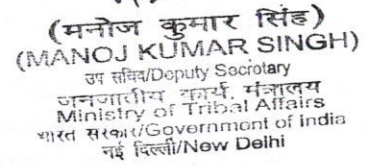 (मनोज कुमार सिंह)
(MANOJ KUMAR SINGH)
उप सचिव/Deputy Secretary
जनजातीय कार्य, मंत्रालय
Ministry of Tribal Affairs
भारत सरकार/Government of India
नई दिल्ली/New Delhi